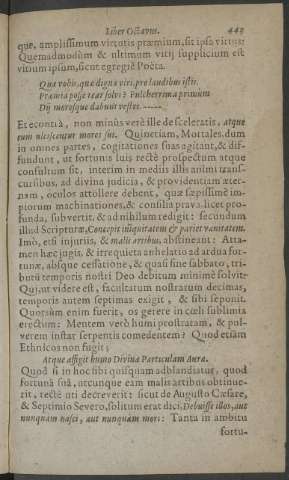 Liber Octavus. 443
que, amplissimum virtutis præmium, sit ipsa virtus:
Quemadmodùm & ultimum vitij supplicium est
vitium ipsum, sicut egregiè Poëta.
Quæ vobis, quæ digna viri, pro laudibus istis,
Præmia posse rear solvi? Pulcherrima primum
Dij moresque dabunt vestri.-----
Et econtià, non minùs verè ille de sceleratis, atque
eum ulciscentur mores sui. Quinetiam, Mortales, dum
in omnes partes, cogitationes suas agitant, & dif-
fundunt, ut fortunis suis rectè prospectum atque
consultum sit, interim in mediis illis animi trans-
cursibus, ad divina judicia, & providentiam æter-
nam, oculos attollere debent, quæ sæpissimè im-
piorum machinationes, & consilia prava licet pro-
funda, subvertit, & ad nihilum redigit: secundum
illud Scripturæ, Concepit iniquitatem & pariet vanitatem.
Imò, etsi injuriis, & malis artibus, abstineant: Atta-
men hæc jugis, & irrequieta anhelatio ad ardua for-
tunæ, absque cessatione, & quasi sine sabbato, tri-
butum temporis nostri Deo debitum minimè solvit:
Qui, ut videre est, facultatum nostrarum decimas,
temporis autem septimas exigit, & sibi seponit.
Quorsùm enim fuerit, os gerere in cœli sublimia
erectum: Mentem verò humi prostratam, & pul-
verem instar serpentis comedentem? Quod etiam
Ethnicos non fugit;
Atque affigit humo Divinæ Particulam Auræ.
Quod si in hoc sibi quisquam adblandiatur, quod
fortunâ suâ, utcunque eam malis artibus obtinue-
rit, rectè uti decreverit: sicut de Augusto Cæsare,
& Septimio Severo, solitum erat dici, Debuisse illos, aut
nunquam nasci, aut nunquam mori: Tanta in ambitu
fortu-